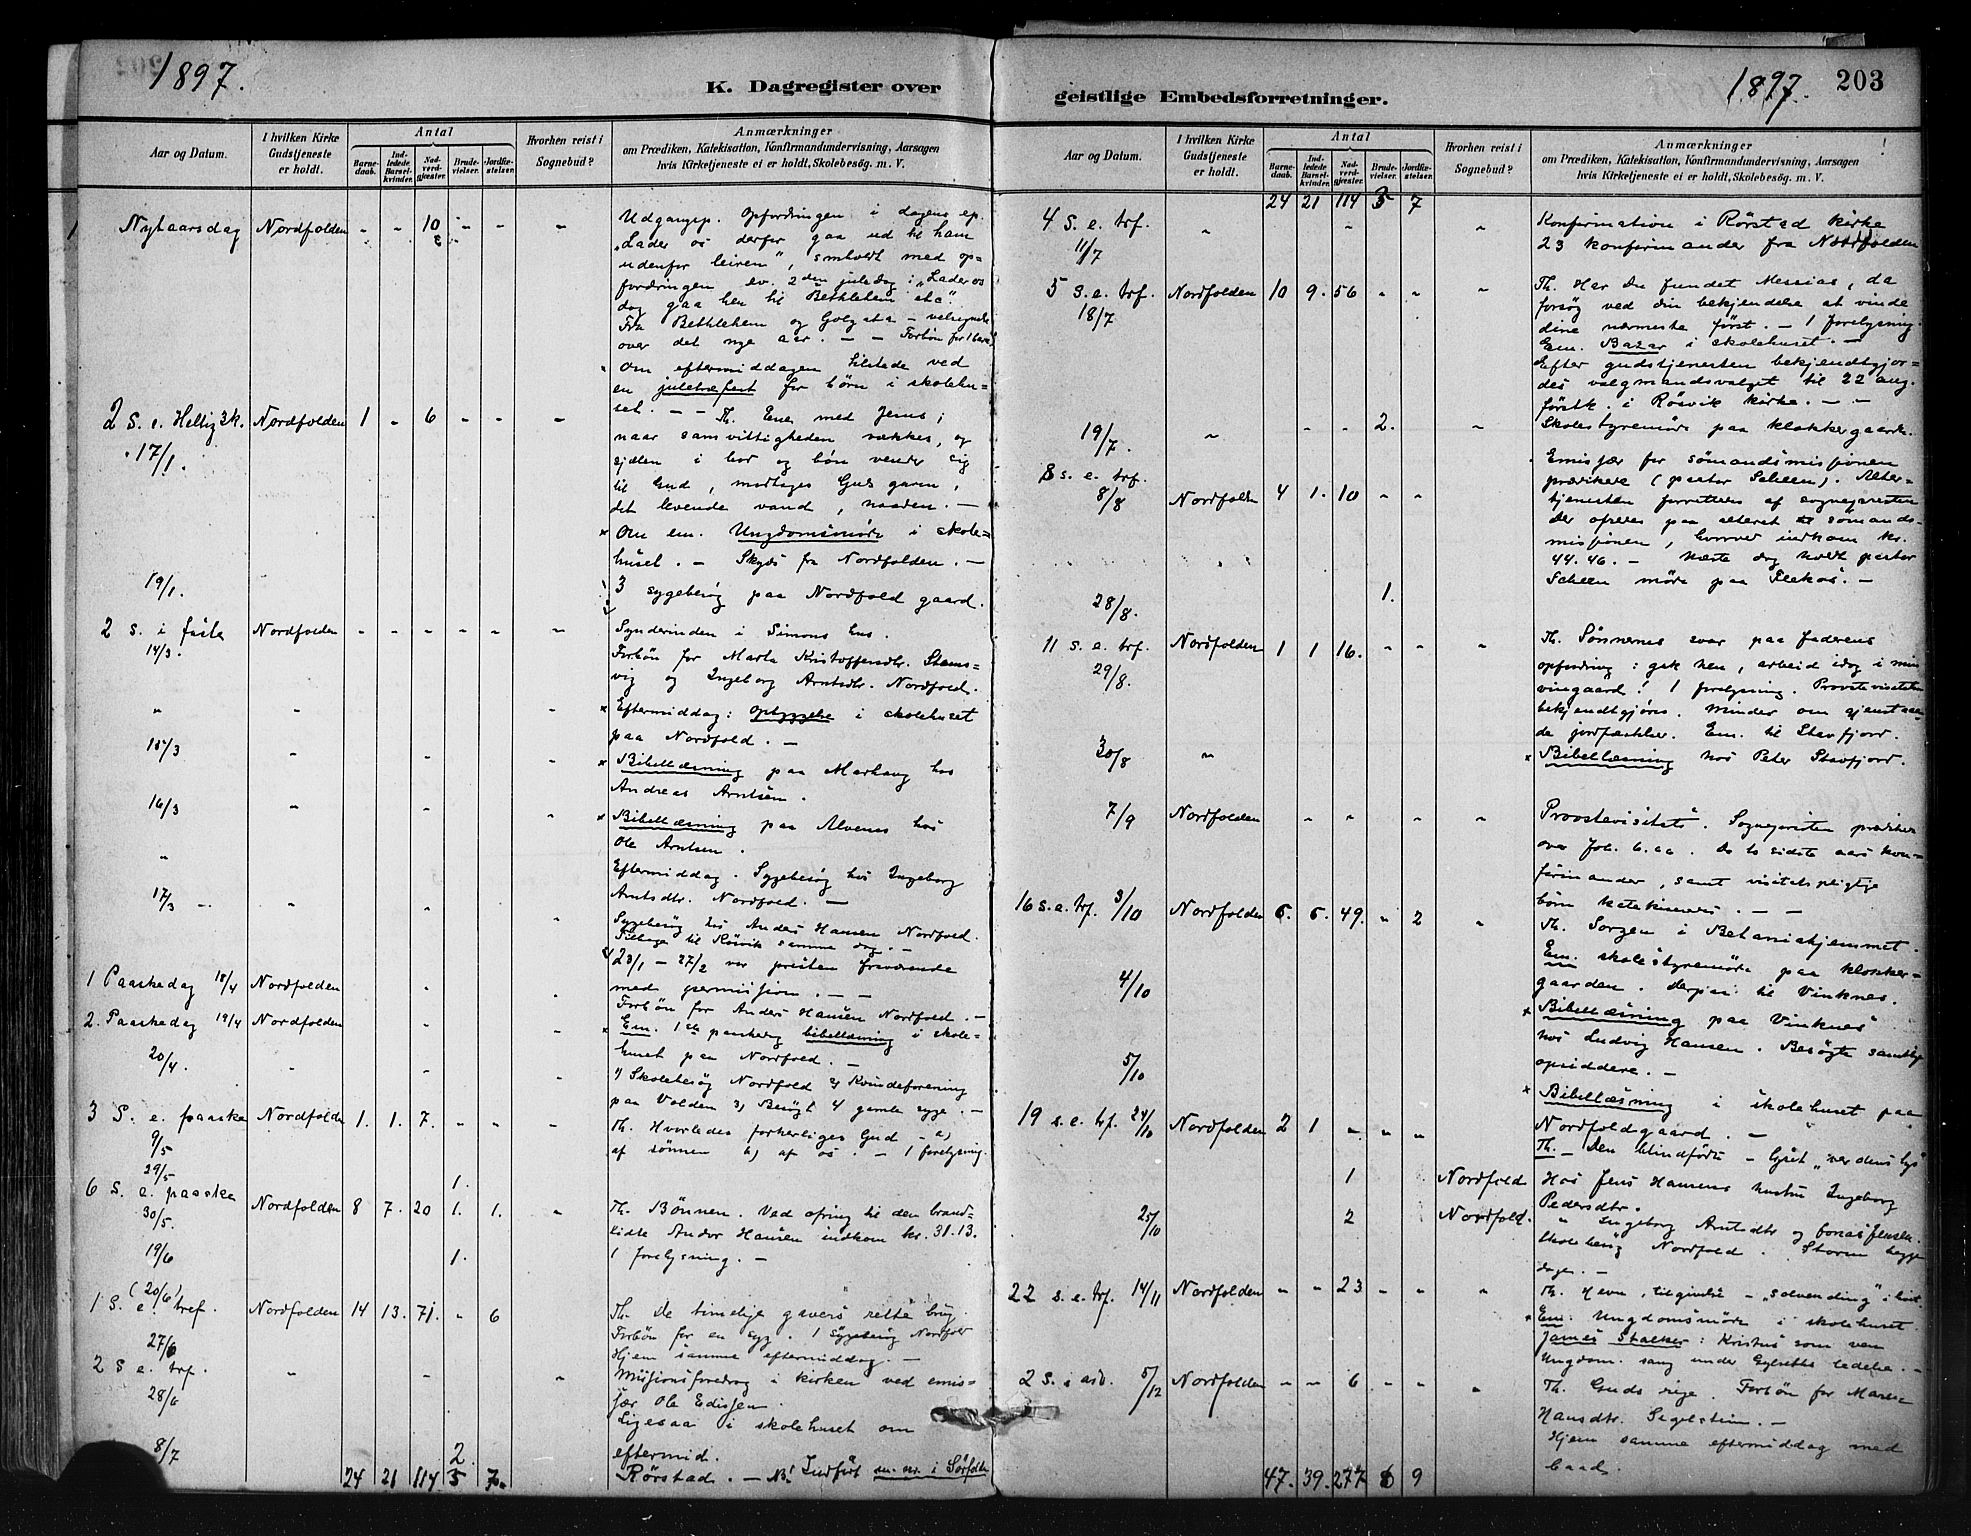 1897.
K. Dagregister over
Aar og Datum.
I hvilken Kirke Gudstjeneste er holdt.
Antal
Barnedaab.
Indledede Barselkvinder.
Nadverdgjæster.
Brudevielser.
Jordfæstelser.
Hvorhen reist i Sognebud?
Anmærkninger
om Prædiken, Katekisation, Konfirmandundervisning, Aarsagen
hvis Kirketjeneste ei er holdt, Skolebesög. m. V.
Nytaarsdag Nordfolden - - 10 - - - Udgangsp. Opfordringen i dagens ep.
"Lader os derfor gaa ud til ham
udenfor leiren", smholdt med op=
fordringen ev. 2den juledag i "Lader os
dog gaa hen til Bethlehem etc".
Fra Bethlehem og Golgata - velsignelse
over det nye aar. - - Forbön for 1 barsel
Om eftermiddagen tilstede ved
en juletræfest for börn i skolehu=
set. - -
2 S. e. Hellig 3 k. Nordfolden 1 - 6 - - - Th. Ene med Jesus;
17/1. naar samvittigheden vækkes, og
sjælen i bod og bön vender sig
til Gud, modtages Guds gave,
det levende vand, naaden. -
x Om em. Ungdomsmöde i skole=
huset. - Skyds fra Nordfolden. -
19/1. 3 sygebesög paa Nordfold gaard.
2 S. i faste Nordfolden - - - - - - Synderinden i Simons hus.
14/3. Forbön for Marta Kristoffersdtr. Stams=
vig og Ingeborg Arntsdtr. Nordfold.
" - - x Eftermiddag: Opbyggelse i skolehuset
paa Nordfold. -
15/3 " - - x Bibellæsning paa Markaug hos
Andreas Arntsen.
16/3 " - - x Bibellæsning paa Alvenes hos
Ole Arntsen.
" Eftermiddag. Sygebesög hos Ingeborg
Arntsdtr. Nordfold. -
17/3 - " - " Sygebesög hos Anders Hansen Nordfold.
Tilbage til Rösvik samme dag. -
23/1 - 27/2 var presten fraværende
med permission. - -
1 Paaskedag 18/4 Nordfolden - - Forbön for Anders Hansen Nordfold. -
2. Paaskedag 19/4 Nordfolden - - x Em. 1ste paaskedag bibellæsning i skole=
huset paa Nordfold. -
20/4. - - " 1) Skolebesög Nordfold 2) Kvindeforening
paa Volden 3) Besögt 4 gamle syge. -
3 S. e. paaske Nordfolden 1. 1. 7. - - - Th. Hvorledes forherliges Gud - a)
9/5 af sönnen b) af os. - 1 forelysning.
29/5 1.
6 S. e. paaske Nordfolden 8 7. 20 1. 1. " Th. Bönnen. Ved ofring til den brand=
30/5. lidte Andor Hansen indkom kr. 31.13.
19/6 1. 1 forelysning. -
(20/6)
1 S. e. tref. Nordfolden 14 13. 71. - 6 Th. De timelige gavers rette brug
Forbön for en syg. 1 sygebesög Nordfold
27/6 Hjem samme eftermiddag. -
2 S e. trf. " - - " Missionsforedrag i kirken ved emis=
28/6 sær Ole Edissen.
Ligesaa i skolehuset om
eftermid.
8/7 2 Rörstad. - NB! Indfört i Sörfolden
24 21 114 5 7.
geistlige Embedsforretninger.
1897. 203
Aar og Datum.
I hvilken Kirke Gudstjeneste er holdt.
Antal
Barnedaab.
Indledede Barselkvinder.
Nadverdgjæster.
Brudevielser.
Jordfæstelser.
Hvorhen reist i Sognebud?
Anmærkninger
om Prædiken, Katekisation, Konfirmandundervisning, Aarsagen
hvis Kirketjeneste ei er holdt, Skolebesög. m. V.
24 21 114 5 7
4 S. e. trf. " - " Konfirmation i Rörstad kirke
11/7 23 konfirmander fra Nordfolden
5 S. e. trf. Nordfolden 10 9. 56 - - " Th. Har Du fundet Messias, da
18/7 forsög ved din bekjendelse at vinde
dine nærmeste först. - 1 forelysning.
Em. Bazar i skolehuset. -
Efter gudstjenesten bekjendtgjor=
des valgmandsvalget til 22 aug.
förstk. i Rösvik kirke. - -
19/7. " - - 2. " Skolestyremöde paa klokkergaarden.
8 s. e. trf. Emissær for sömandsmissionen
8/8 Nordfolden 4 1. 10 - - prædikede (pastor Scheen). Alter=
tjenesten forrettedes af sognepresten
Der ofredes paa alteret til sömands=
missionen, hvorved indkom kr.
44.46. - Næste dag holdt pastor
Scheen möde paa -
28/8. 1.
11 s. e. trf. Nordfolden 1 1 16. - - " Th. Sönnernes svar paa faderens
29/8. opfordring: gak hen, arbeid idag i min
vingaard! 1 forelysning. Provstevisitatsen
bekjendtgjöres. Minder om gjenstaaen=
de jordfæstelser. Em. til Stavfjord.
30/8 " x Bibellæsning hos Peter Stavfjord.
7/9 Nordfolden - - - " Provstevisitats. Sognepresten prædiker
over Joh. 6. De to sidste aars kon=
firmander, samt visitatspligtige
börn katekiseres. - -
16 s. e. trf. 3/10 Nordfolden 6. 6. 49. - 2 " Th. Sorgen i Betaniahjemmet.
Em. skolestyremöde paa klokker=
gaarden. Derpaa til Vinknes.
4/10 x Bibellæsning paa Vinknes
hos Ludvig Hansen. Besögte samtlige
opsiddere. -
5/10 x Bibellæsning i skolehuset paa
Nordfoldgaard. -
19 s. e. trf. 24/10 Nordfolden 2 1 - - - Th. - Den blindfödte - lyset "verdens lys"
1 Nordfold Hos Jens Hansens hustru Ingeborg
Pedersdtr.
25/10 2 Nordfold. " Ingeborg Arntsdtr og Jonas Jensen.
Skolebesög Nordfold. Storm begge
dage. -
22 s. e. trf. 14/11 Nordfolden - - 23 - - " Th. Hevn, tilgivelse -
x Em: Ungdomsmöde i skolehuset.
James Stalker: Kristus som ven
Ungdom. sang under ledelse. -
2 S. i adv. 5/12 Nordfolden - - 6 - - " Th. Guds rige. Forbön for Maren
Hansdtr. Segelstein. -
Hjem samme eftermiddag med
baad.
47. 39. 277 8 9